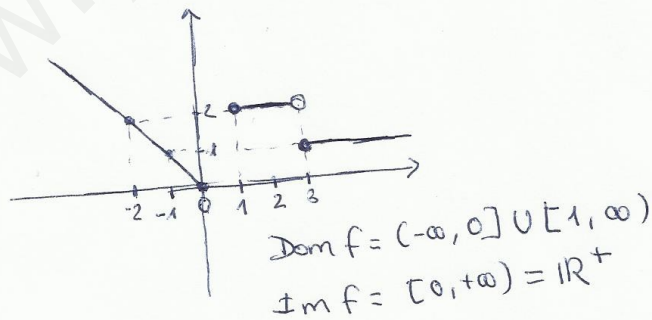 2
1
-2 -1 0 1 2 3
Dom f = (-∞, 0] ∪ [1, ∞)
Im f = [0, +∞) = IR⁺